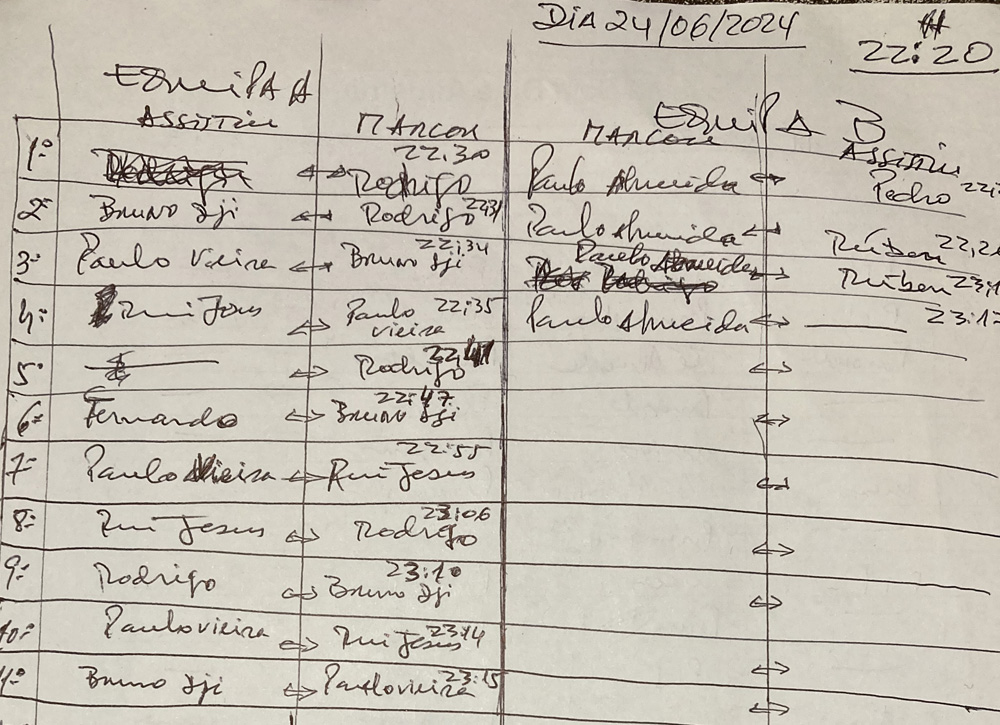 DIA 24/06/2024
22:20
EQUIPA A
EQUIPA B
ASSISTIU MARCOU
MARCOU ASSISTIU
1º ↔ Rodrigo 22:30
Paulo Almeida ↔ Pedro
2º Bruno Dji ↔ Rodrigo 22:31
Paulo Almeida ↔ Rúben
3º Paulo Vieira ↔ Bruno Dji 22:34
Paulo Almeida ↔ Rúben
4º Rui Jesus ↔ Paulo Vieira 22:35
Paulo Almeida ↔ —
5º — ↔ Rodrigo 22:41
6º Fernando ↔ Bruno Dji 22:47
7º Paulo Vieira ↔ Rui Jesus 22:55
8º Rui Jesus ↔ Rodrigo 23:06
9º Rodrigo ↔ Bruno Dji 23:10
10º Paulo Vieira ↔ Rui Jesus 23:14
11º Bruno Dji ↔ Paulo Vieira 23:15